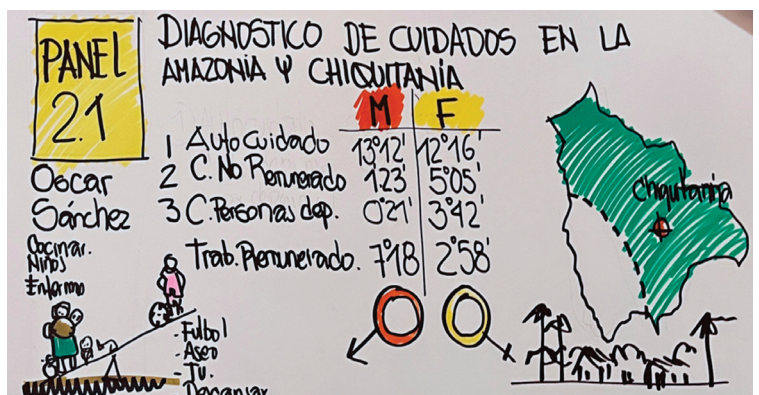 PANEL
2.1
DIAGNOSTICO DE CUIDADOS EN LA
AMAZONIA Y CHIQUITANIA
Oscar
Sánchez
M F
1 Auto cuidado 13°12' 12°16'
2 C. No Remunerado 1°23' 5°05'
3 C. Personas dep. 0°21' 3°42'
Trab. Remunerado. 7°18 2°58'
Cocinar.
Niños
Enfermo
- Futbol
- Aseo
- TV.
- Descansar
Chiquitania